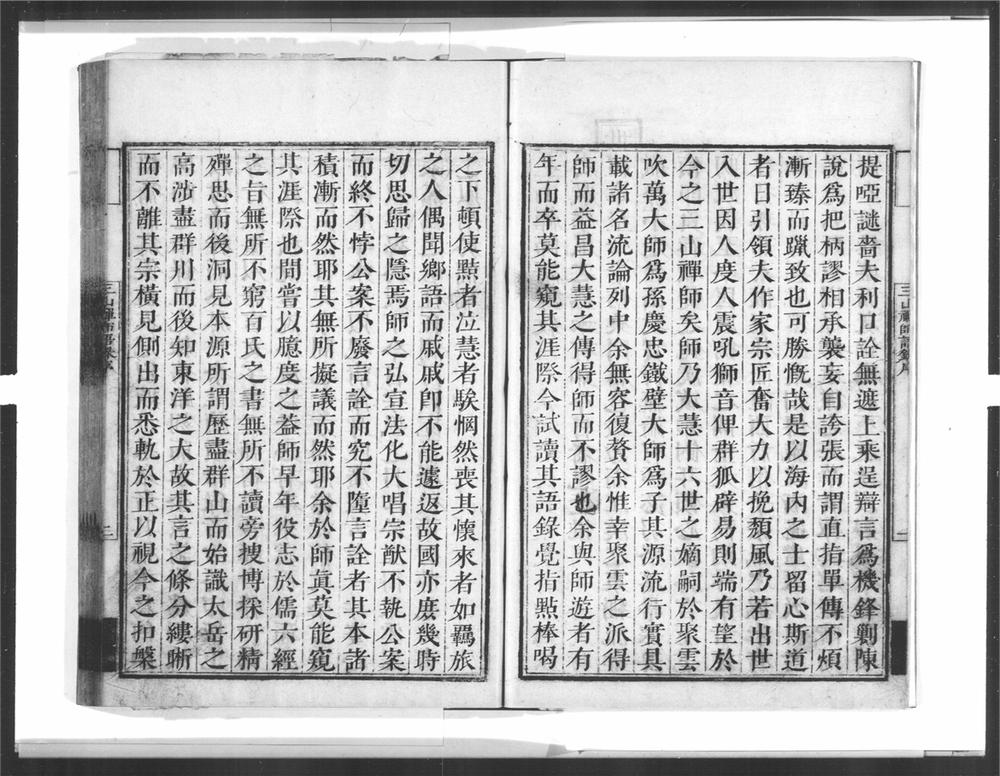 提啞謎嗇夫利口詮無遮上乘逞辯言爲機鋒剿陳
說爲把柄謬相承襲妄自誇張而謂直指單傳不煩
漸臻而躐致也可勝慨哉是以海內之士留心斯道
者日引領夫作家宗匠奮大力以挽頹風乃若出世
入世因人度人震吼獅音俾群狐辟易則端有望於
今之三山禪師矣師乃大慧十六世之嫡嗣於聚雲
吹萬大師爲孫慶忠鐵壁大師爲子其源流行實具
載諸名流論列中余無容復贅余惟幸聚雲之派得
師而益昌大慧之傳得師而不謬也余與師遊者有
年而卒莫能窺其涯際今試讀其語錄覺指點棒喝
三山禪師語錄序
一
之下頓使黠者泣慧者騃惘然喪其懷來者如羈旅
之人偶聞鄉語而戚戚卽不能遽返故國亦庶幾時
切思歸之隱焉師之弘宣法化大唱宗猷不執公案
而終不悖公案不廢言詮而究不墮言詮者其本諸
積漸而然耶其無所擬議而然耶余於師眞莫能窺
其涯際也間嘗以臆度之益師早年役志於儒六經
之旨無所不窮百氏之書無所不讀旁搜博採研精
殫思而後洞見本源所謂歷盡群山而始識太岳之
高涉盡群川而後知東洋之大故其言之條分縷晰
而不離其宗橫見側出而悉軌於正以視今之扣槃